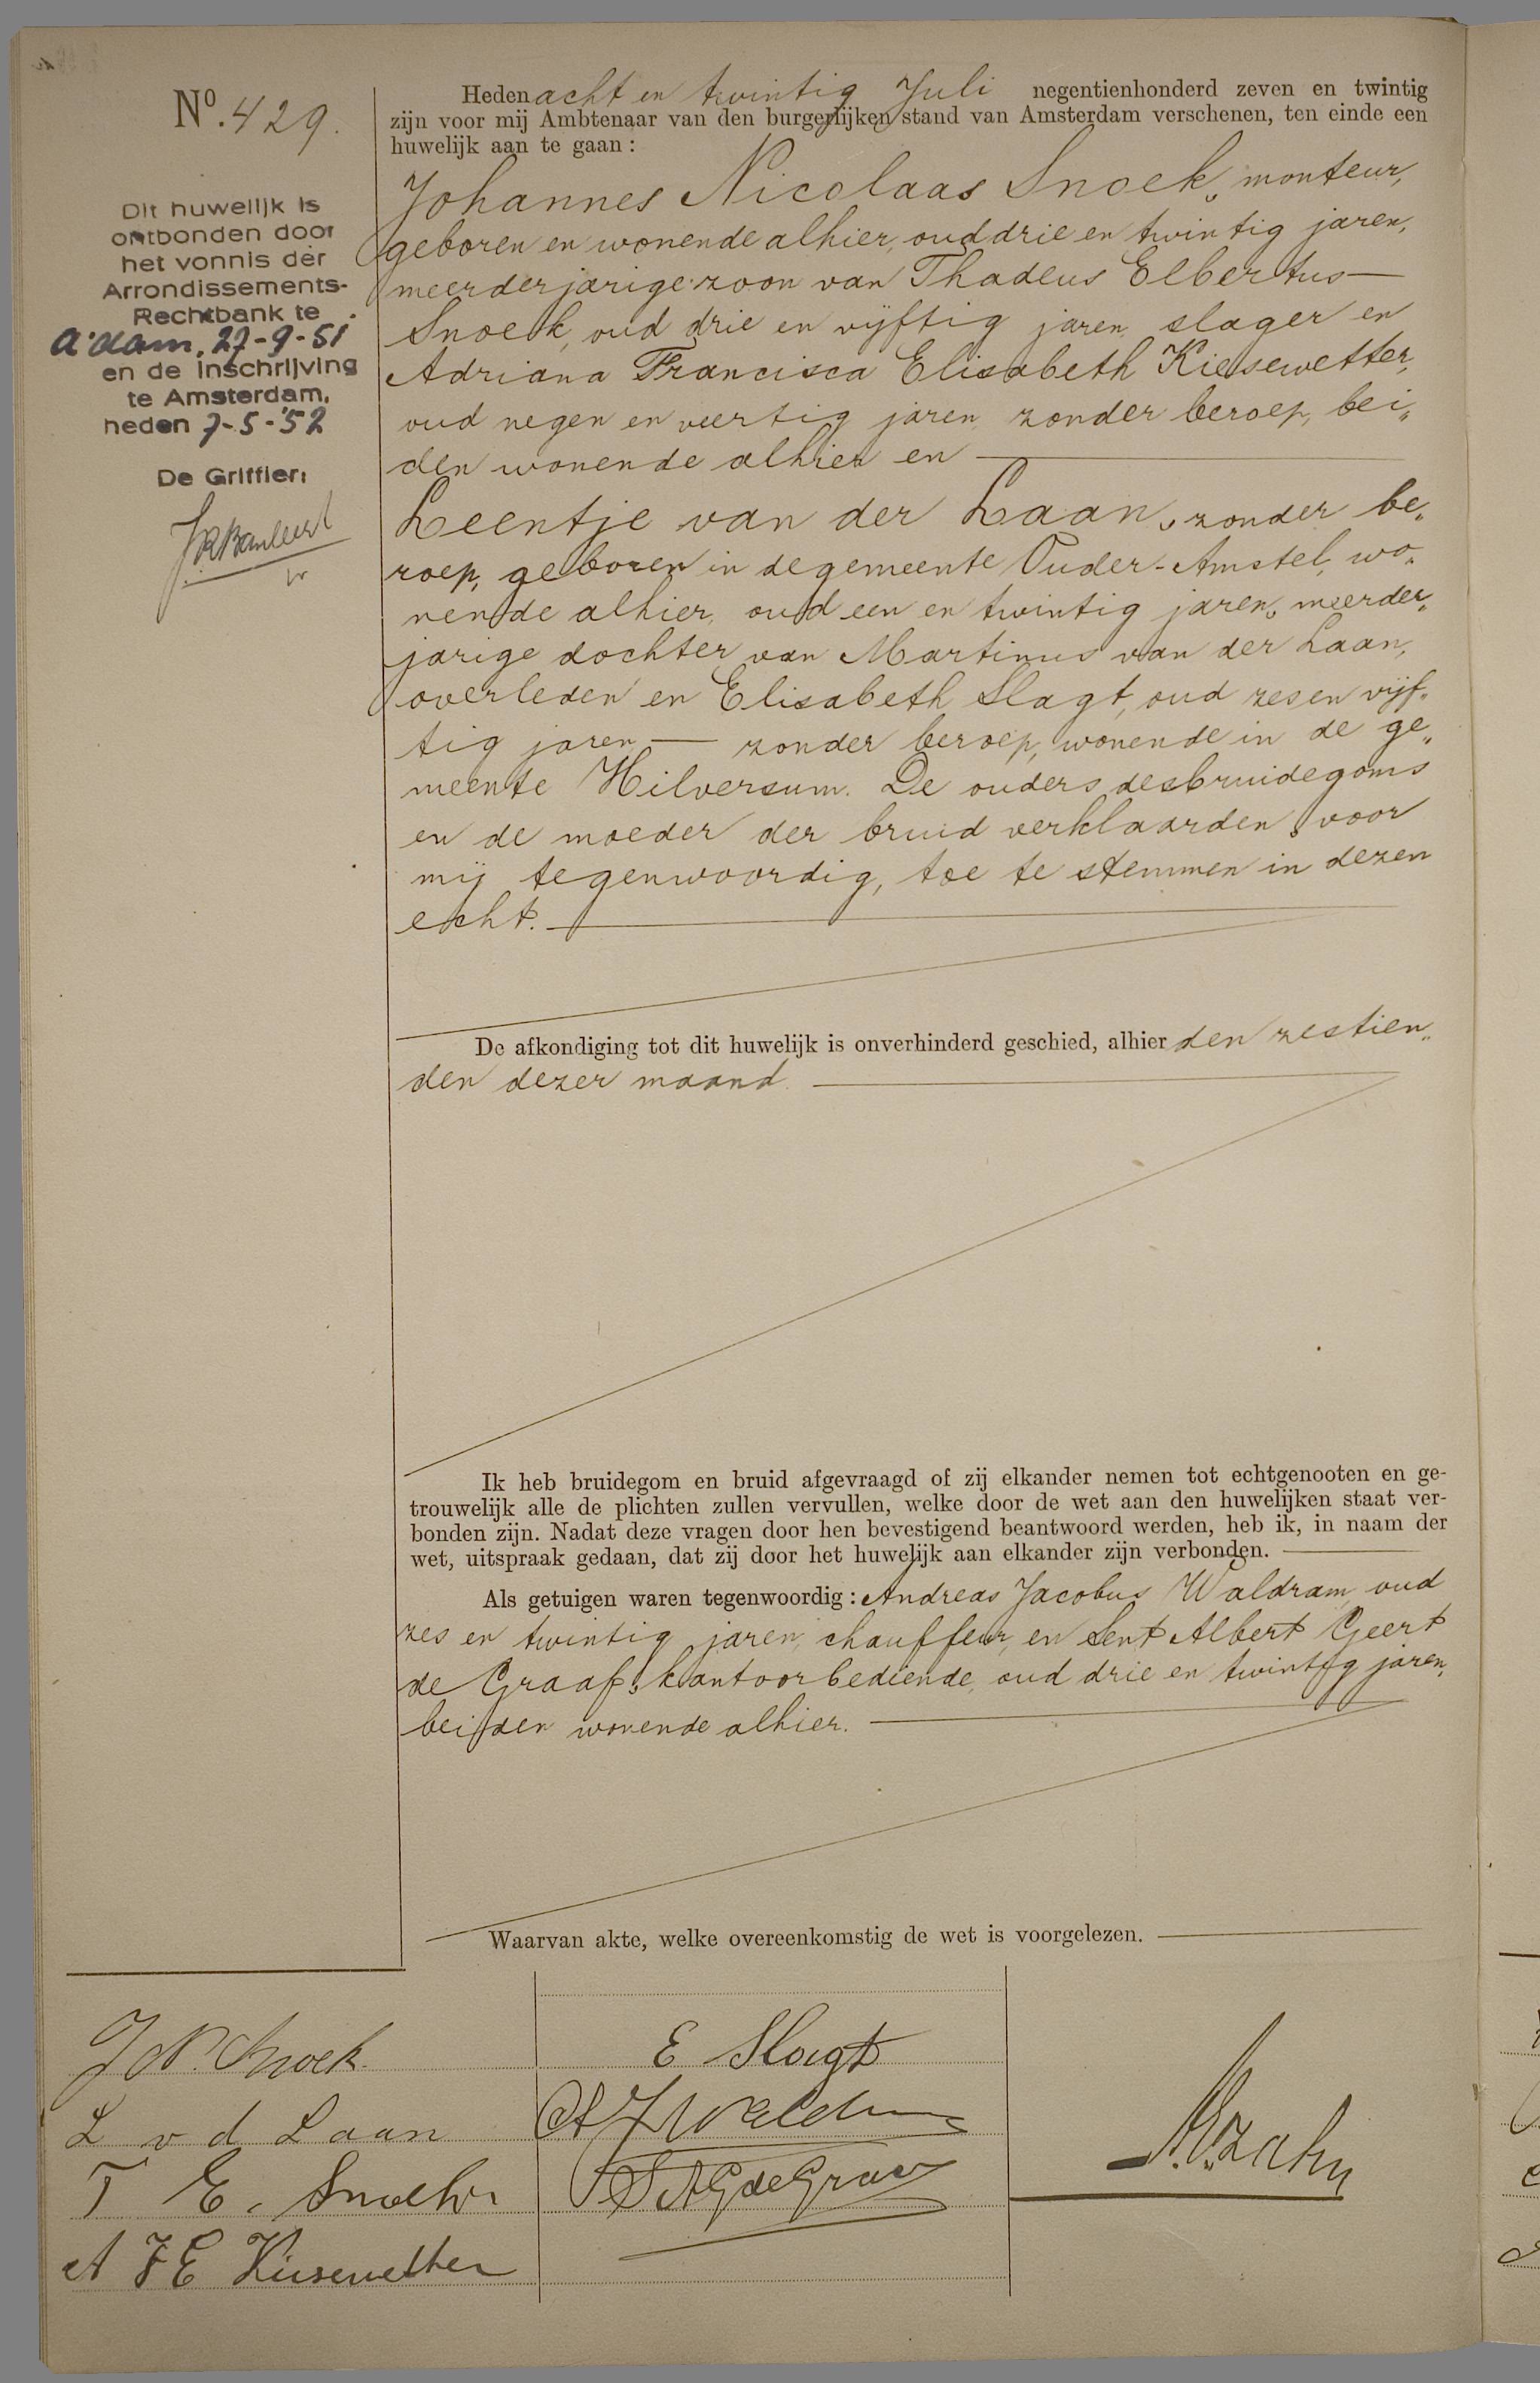 Nº. 429.
Dit huwelijk is
ontbonden door
het vonnis der
Arrondissements-
Rechtbank te
A'dam, 27-9-51
en de inschrijving
te Amsterdam,
heden 7-5-'52
De Griffier:
Heden acht en twintig Juli negentienhonderd zeven en twintig
zijn voor mij Ambtenaar van den burgerlijken stand van Amsterdam verschenen, ten einde een
huwelijk aan te gaan:
Johannes Nicolaas Snoek, monteur,
geboren en wonende alhier, oud drie en twintig jaren,
meerderjarige zoon van Thadeus Elbertus
Snoek, oud drie en vijftig jaren, slager en
Adriana Francisca Elisabeth Kiesewetter,
oud negen en veertig jaren, zonder beroep, bei„
den wonende alhier en
Leentje van der Laan, zonder be„
roep, geboren in de gemeente Ouder-Amstel, wo„
nende alhier, oud een en twintig jaren, meerder„
jarige dochter van Martinus van der Laan,
overleden en Elisabeth Slagt, oud zes en vijf„
tig jaren — zonder beroep, wonende in de ge„
meente Hilversum. De ouders des bruidegoms
en de moeder der bruid verklaarden, voor
mij tegenwoordig, toe te stemmen in dezen
echt.
De afkondiging tot dit huwelijk is onverhinderd geschied, alhier den zestien„
den dezer maand.
Ik heb bruidegom en bruid afgevraagd of zij elkander nemen tot echtgenooten en ge-
trouwelijk alle de plichten zullen vervullen, welke door de wet aan den huwelijken staat ver-
bonden zijn. Nadat deze vragen door hen bevestigend beantwoord werden, heb ik, in naam der
wet, uitspraak gedaan, dat zij door het huwelijk aan elkander zijn verbonden.
Als getuigen waren tegenwoordig: Andreas Jacobus Waldram, oud
zes en twintig jaren, chauffeur, en Sent Albert Geert
de Graaf, kantoorbediende, oud drie en twintig jaren,
beiden wonende alhier.
Waarvan akte, welke overeenkomstig de wet is voorgelezen.
J N. Snoek.
L v d Laan
T E. Snoek
A F E Kiesewetter
E Slagt
A J Waldram
S A G de Graaf